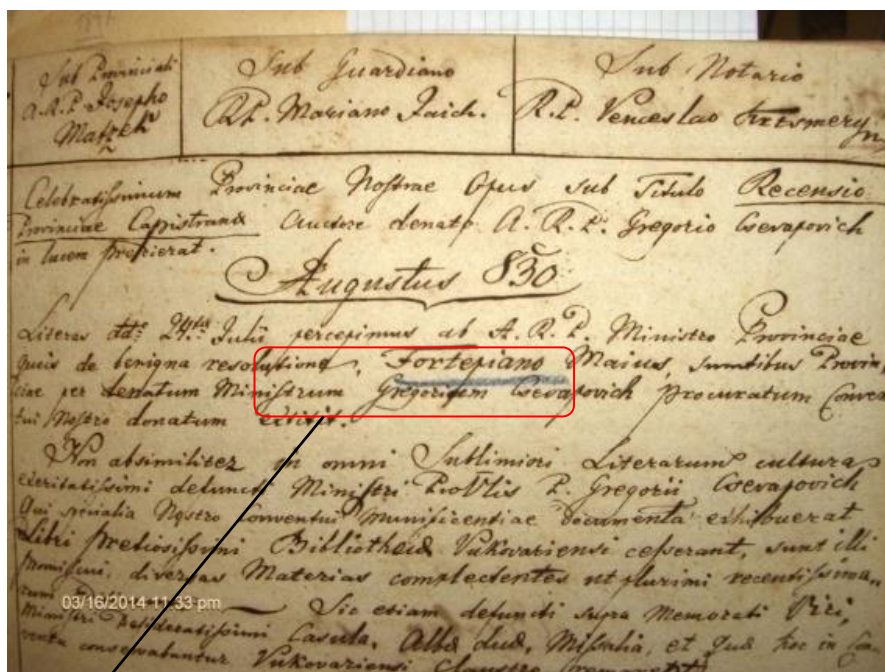 Sub Provinciali
A. R. P. Josepho
Matzek
Sub Guardiano
R. P. Mariano Jaich.
Sub Notario
R. P. Venceslao
Celebratissimum Provinciae Nostrae Opus sub Titulo Recensio
Provinciae Capistranae Auctore denato A. R. P. Gregorio Csevapovich
in lucem prodierat.
Augustus 830
Literas ddo 24ta Julii percepimus ab A. R. P. Ministro Provinciae
quis de benigna resolutione, Fortepiano Maius, sumtibus Provin
ciae per denatum Ministrum Gregorium Csevapovich procuratum Conven
tui Nostro donatum extitit.
Non absimiliter in omni Sublimiori Literarum cultura
exercitatissimi defuncti Ministri ProVlis P. Gregorii Csevapovich
Qui specialia Nostro Conventui munificentiae documenta exhibuerat
Libri pretiosissimi Bibliothecae Vukovariensi cesserant, sunt illi
diversas Materias complectentes ut plurimi recentissima
rum
03/16/2014 11:33 pm
Sic etiam defuncti supra Memorati Viri,
Ministri desideratissimi Casula, Alba duae, Missalia, et quae hoc in Con
ventu conservabantur Vukovariensi Claustro